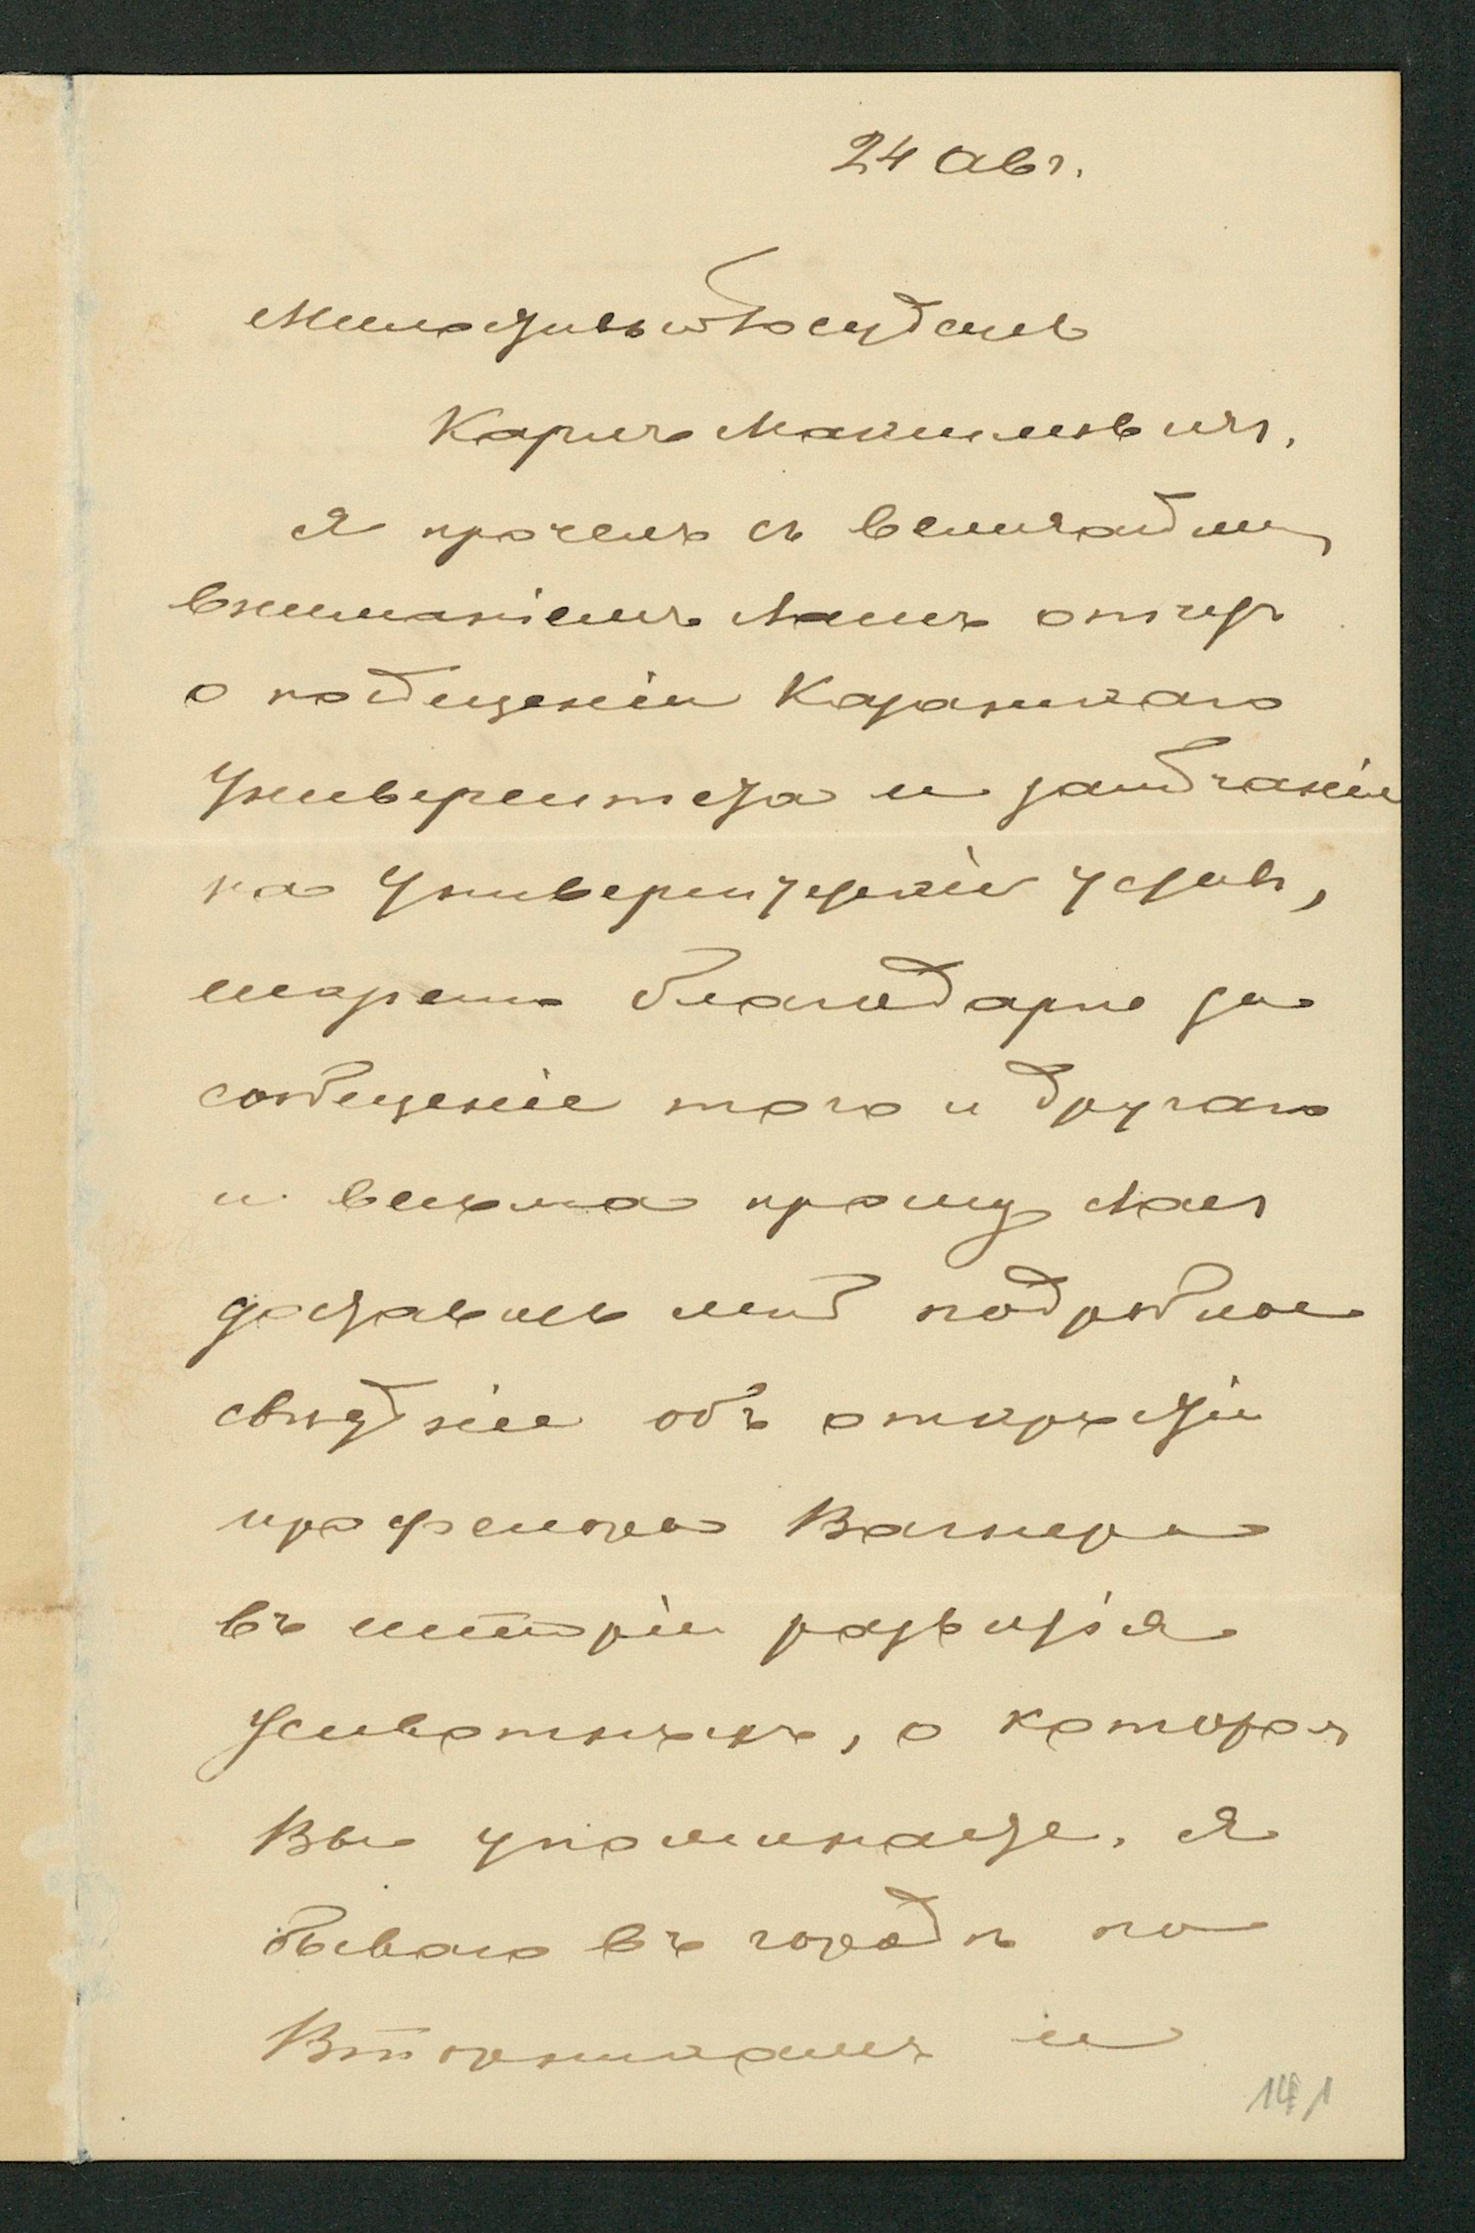 24 Авг.
Милостивый Государь
Карлъ Максимовичъ,
Я прочелъ съ величайшим
вниманіемъ Вашъ отчетъ
о посѣщеніи Казанскаго
Университета и замѣчанія
на Университетскій уставъ,
искренно благодарю за
сообщеніе того и другаго
и весьма прошу Васъ
доставить мнѣ подробное
свѣдѣніе объ открытіи
профессора Вагнера
въ исторіи развитія
животныхъ, о которомъ
Вы упоминаете. Я
бываю въ городѣ по
Вторникамъ и
141